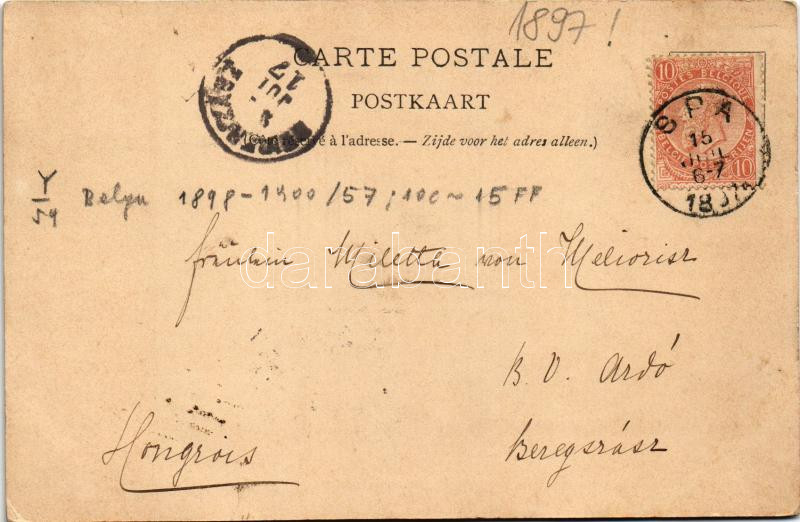 1897!
CARTE POSTALE
POSTKAART
(Côté réservé à l'adresse. — Zijde voor het adres alleen.)
10 POSTES BELGIQUE
10
SPA
15
JUIL
6-7
17
JUL
Y
54
Belgu 1898-1900/57; 10c ~ 15 FF
Fräulein Miletta von Meliorisz
darabanth
B. V. Ardó
Hongrois
Beregszász